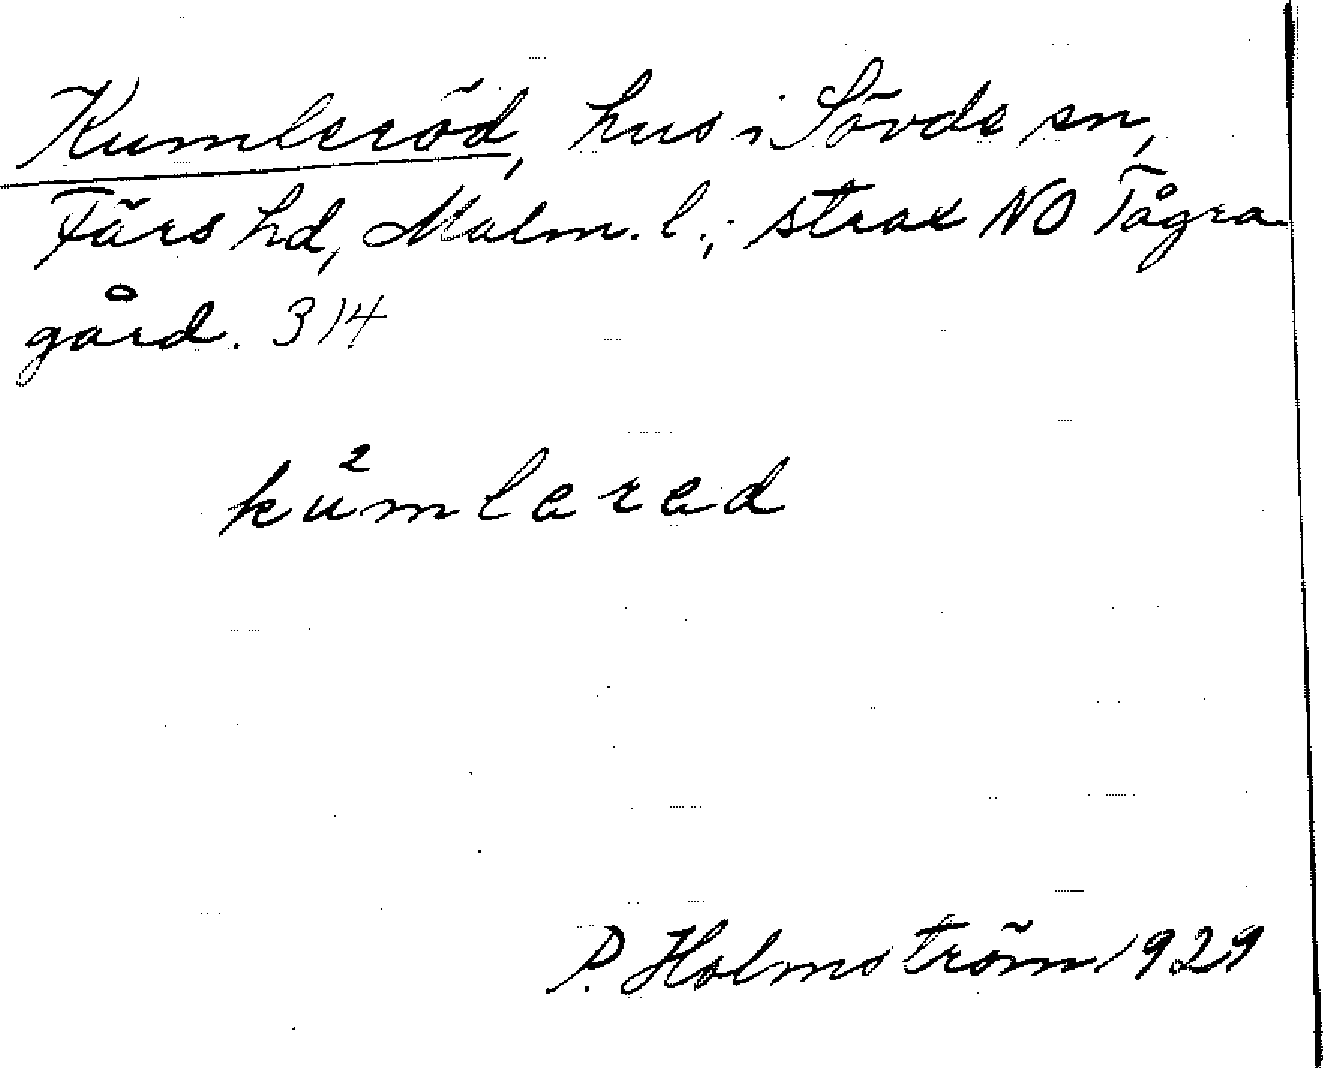 Kumleröd, hus i Sövde sn,
Färs hd, Malm. l.; strax NO Tågra
gård. 314
ku²mlerad
P. Holmström 1929